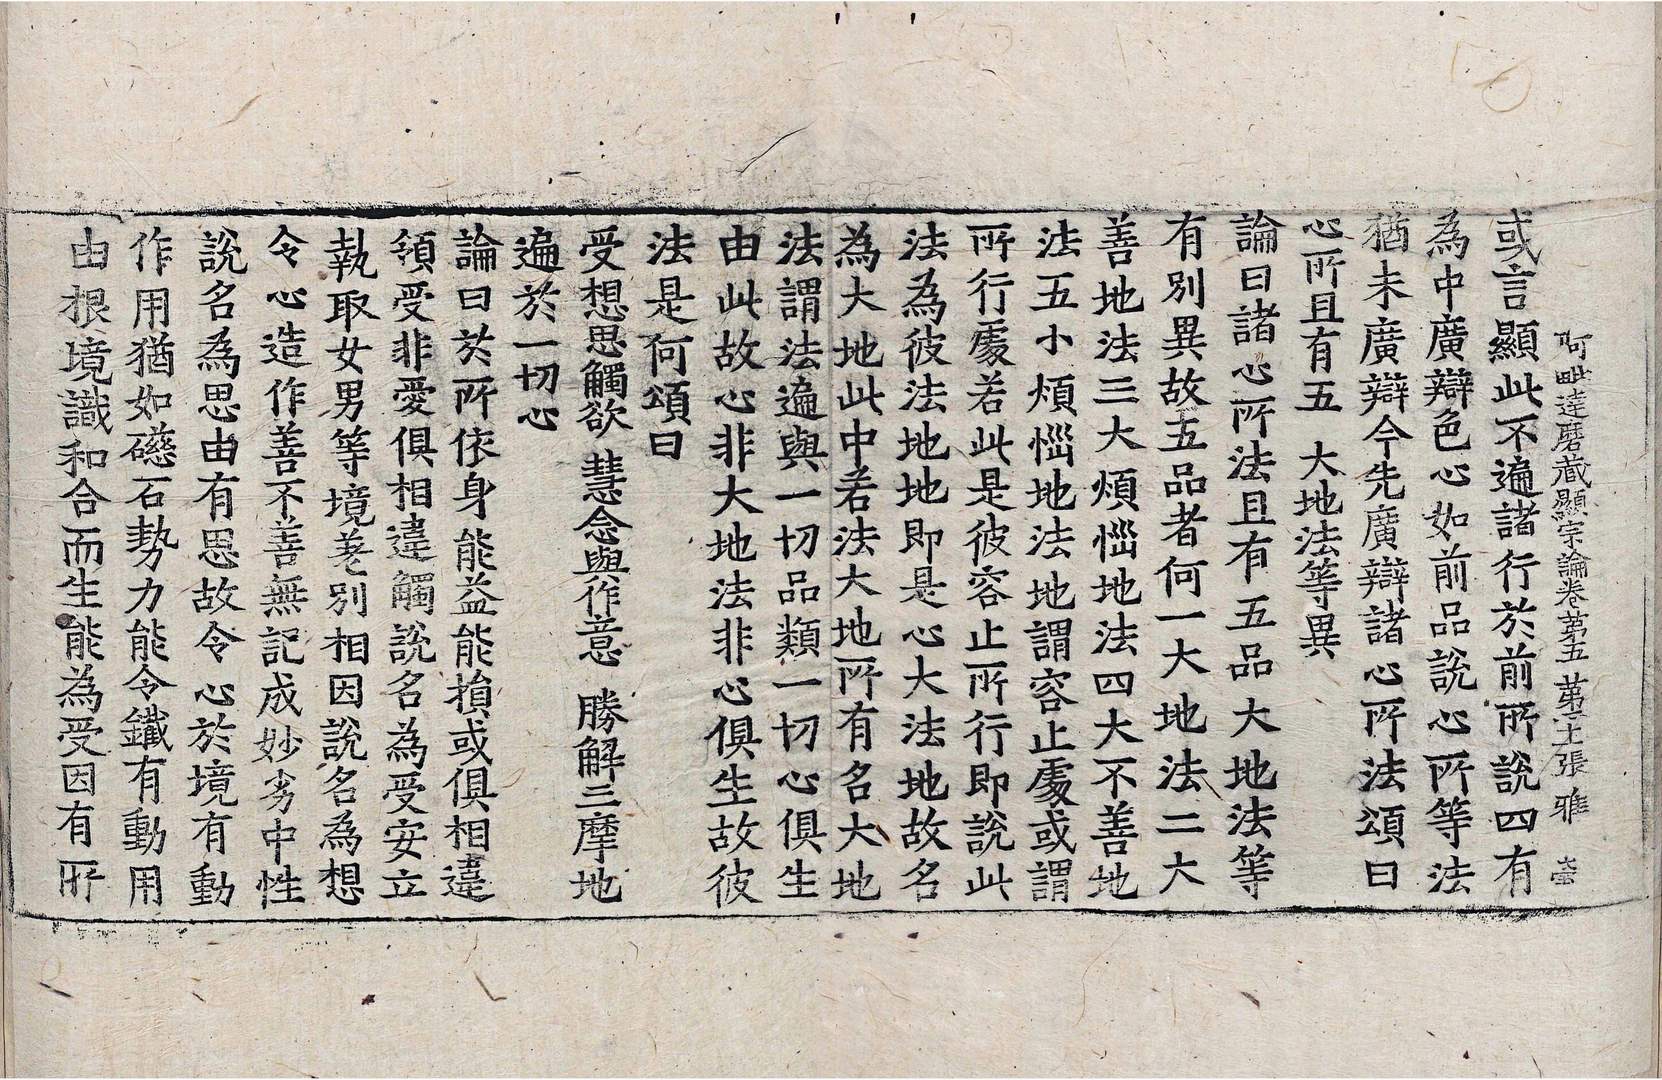 阿毗達磨藏顯宗論卷第五 第 張 雅
或言顯此不遍諸行於前所說四有
為中廣辯色心如前品說心所等法
猶未廣辯今先廣辯諸心所法頌曰
心所且有五 大地法等異
論曰諸心所法且有五品大地法等
有別異故五品者何一大地法二大
善地法三大煩惱地法四大不善地
法五小煩惱地法地謂容止處或謂
所行處若此是彼容止所行即說此
法為彼法地地即是心大法地故名
為大地此中若法大地所有名大地
法謂法遍與一切品類一切心俱生
由此故心非大地法非心俱生故彼
法是何頌曰
受想思觸欲 慧念與作意 勝解三摩地
遍於一切心
論曰於所依身能益能損或俱相違
領受非愛俱相違觸說名為受安立
執取女男等境差別相因說名為想
令心造作善不善無記成妙劣中性
說名為思由有思故令心於境有動
作用猶如礠石勢力能令鐵有動用
由根境識和合而生能為受因有所